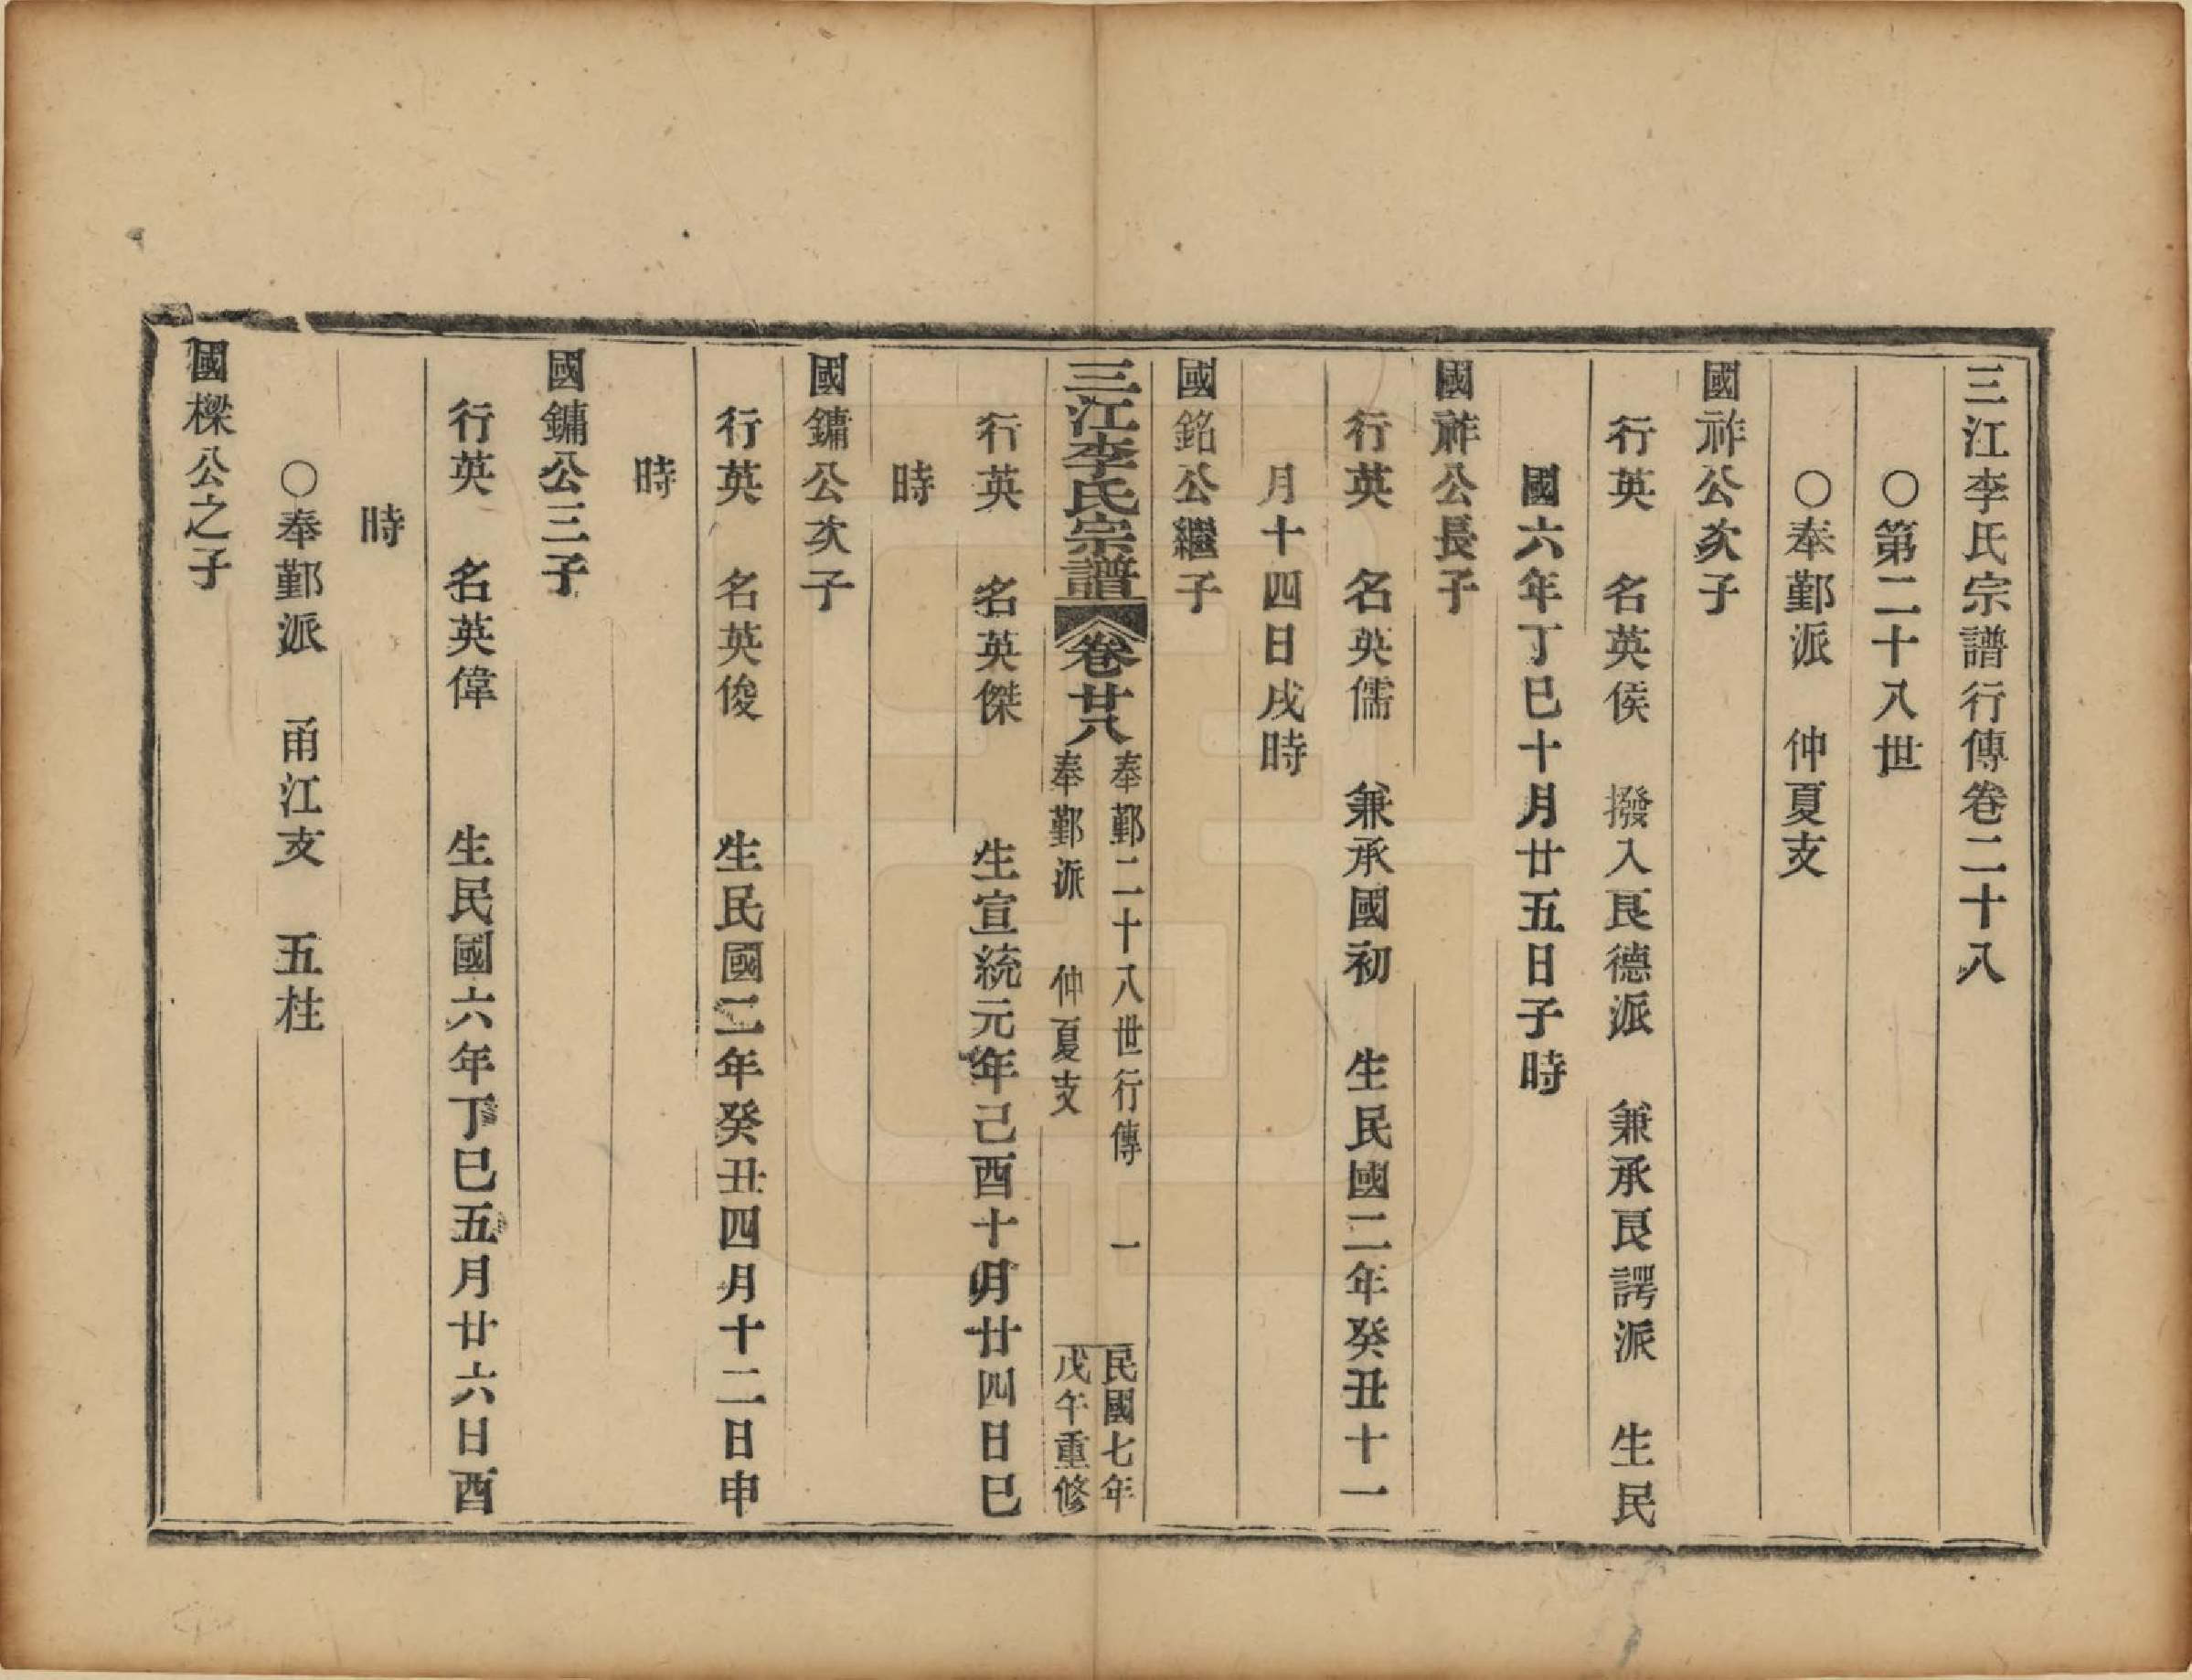 三江李氏宗譜行傳卷二十八
○第二十八世
○奉鄞派　仲夏支
國祚公次子
行英　名英侯　撥入艮德派　兼承艮諤派　生民
國六年丁巳十月廿五日子時
國祚公長子
行英　名英儒　兼承國初　生民國二年癸丑十一
月十四日戌時
國銘公繼子
三江李氏宗譜　卷廿八
奉鄞二十八世行傳　一
奉鄞派　仲夏支
民國七年
戊午重修
行英　名英傑　生宣統元年己酉十月廿四日巳
時
國鏞公次子
行英　名英俊　生民國二年癸丑四月十二日申
時
國鏞公三子
行英　名英偉　生民國六年丁巳五月廿六日酉
時
○奉鄞派　甬江支　五柱
國樑公之子